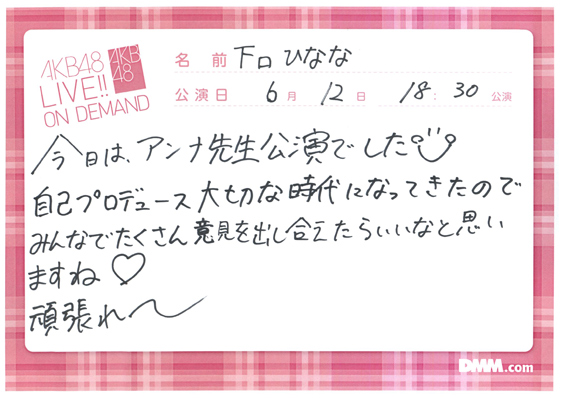 AKB48
LIVE!!
ON DEMAND
AKB
48
名 前 下口 ひなな
公演日 6月 12日 18:30公演
今日は、アンナ先生公演でした
自己プロデュース大切な時代になってきたので
みんなでたくさん意見を出し合えたらいいなと思い
ますね♡
頑張れ〜
DMM.com